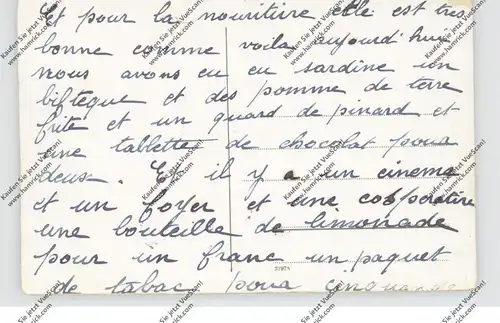 Et pour la nouritiire elle est tres
bonne comme voila aujourd'hui
nous avons eu eu sardine un
bifteque et des pomme de terre
frite et un quard de pinard et
une tablette de chocolat pour
deux. Et il y a un cinema
et un foyer et une cooperative
une bouteille de limonade
pour un franc un paquet
de tabac pour cinquante